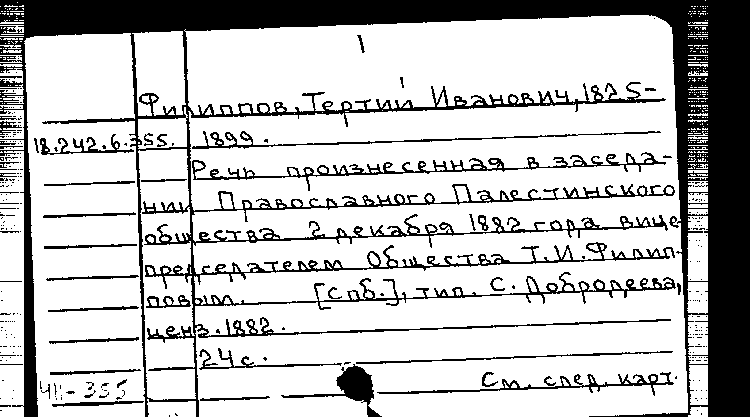 1
Филиппов, Тертий Иванович, 1825-
18.242.6.355. 1899.
Речь произнесенная в заседа-
нии Православного Палестинского
общества 2 декабря 1882 года вице-
председателем Общества Т.И.Филип-
повым. [Спб.], тип. С. Добродеева,
ценз. 1882.
24 с.
См. след. карт.